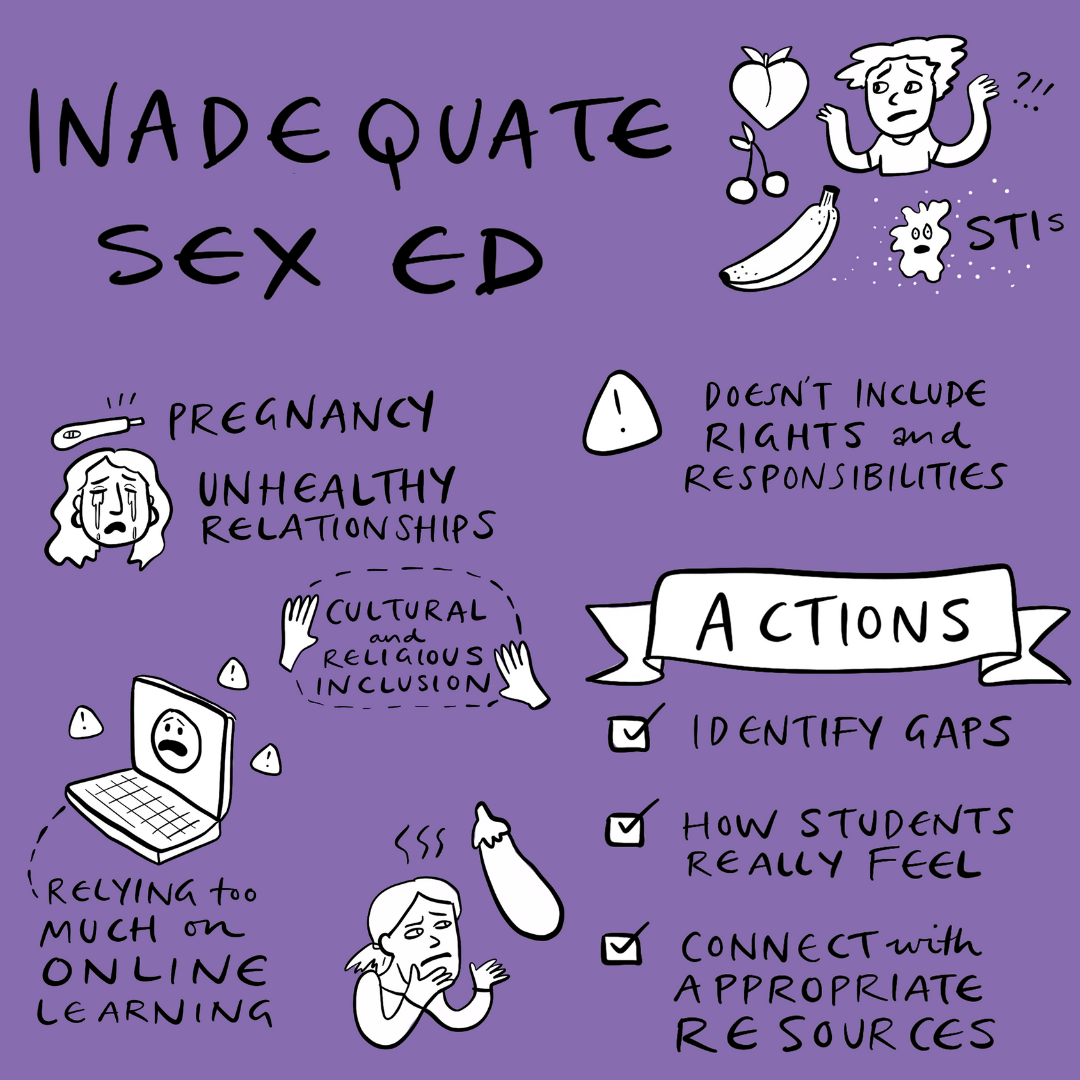 INADEQUATE
SEX ED
?!!
...
STIs
PREGNANCY
UNHEALTHY
RELATIONSHIPS
!
DOESN'T INCLUDE
RIGHTS and
RESPONSIBILITIES
CULTURAL
and
RELIGIOUS
INCLUSION
!
!
!
RELYING too
MUCH on
ONLINE
LEARNING
ACTIONS
IDENTIFY GAPS
HOW STUDENTS
REALLY FEEL
CONNECT with
APPROPRIATE
RESOURCES